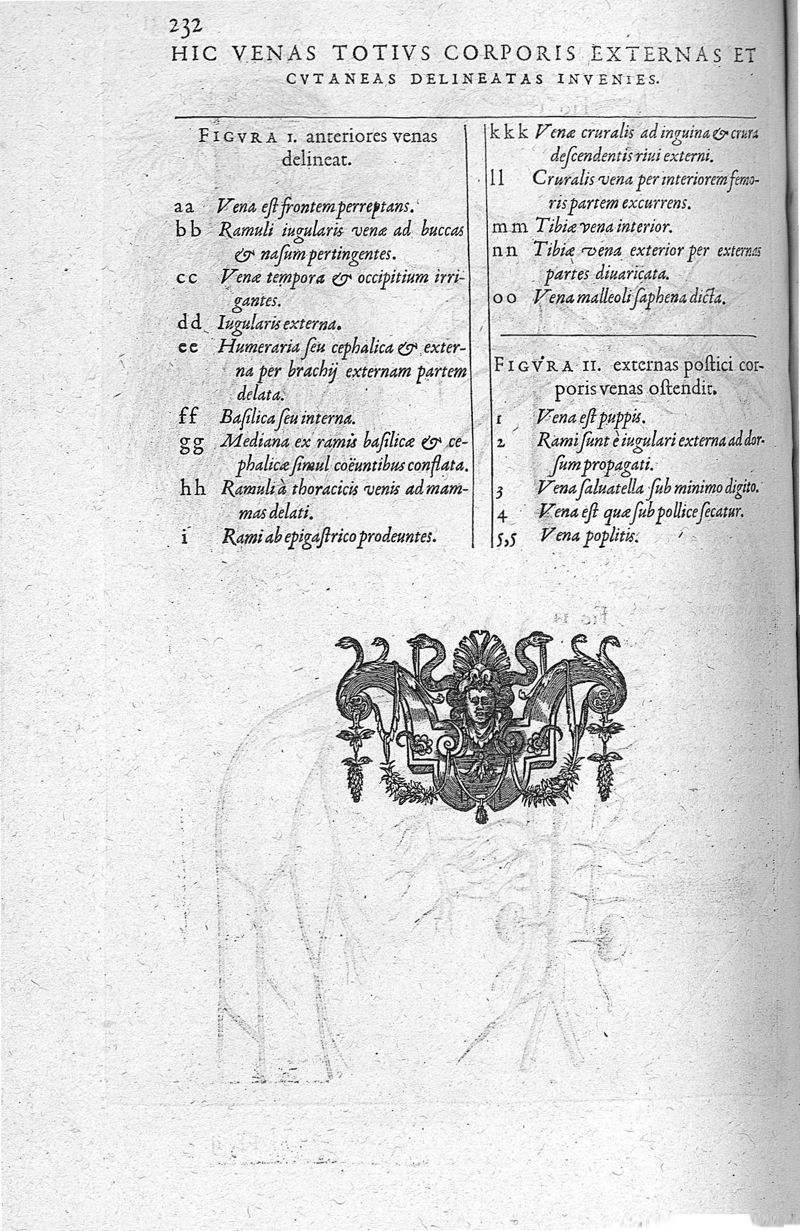 232
HIC VENAS TOTIVS CORPORIS EXTERNAS ET
CVTANEAS DELINEATAS INVENIES.
FIGVRA I. anteriores venas
delineat.
aa Vena est frontem perreptans.
bb Ramuli iugularis venæ ad buccas
& nasum pertingentes.
cc Venæ tempora & occipitium irri-
gantes.
dd Iugularis externa.
ee Humeraria seu cephalica & exter-
na per brachij externam partem
delata.
ff Basilica seu interna.
gg Mediana ex ramis basilicæ & ce-
phalicæ simul coëuntibus conflata.
hh Ramuli à thoracicis venis ad mam-
mas delati.
i Rami ab epigastrico prodeuntes.
kkk Venæ cruralis ad inguina & crura
descendentis riui externi.
ll Cruralis vena per interiorem femo-
ris partem excurrens.
mm Tibiæ vena interior.
nn Tibiæ vena exterior per externas
partes diuaricata.
oo Vena malleoli saphena dicta.
FIGVRA II. externas postici cor-
poris venas ostendit.
1 Vena est puppis.
2 Rami sunt è iugulari externa ad dor-
sum propagati.
3 Vena saluatella sub minimo digito.
4 Vena est quæ sub pollice secatur.
5,5 Vena poplitis.